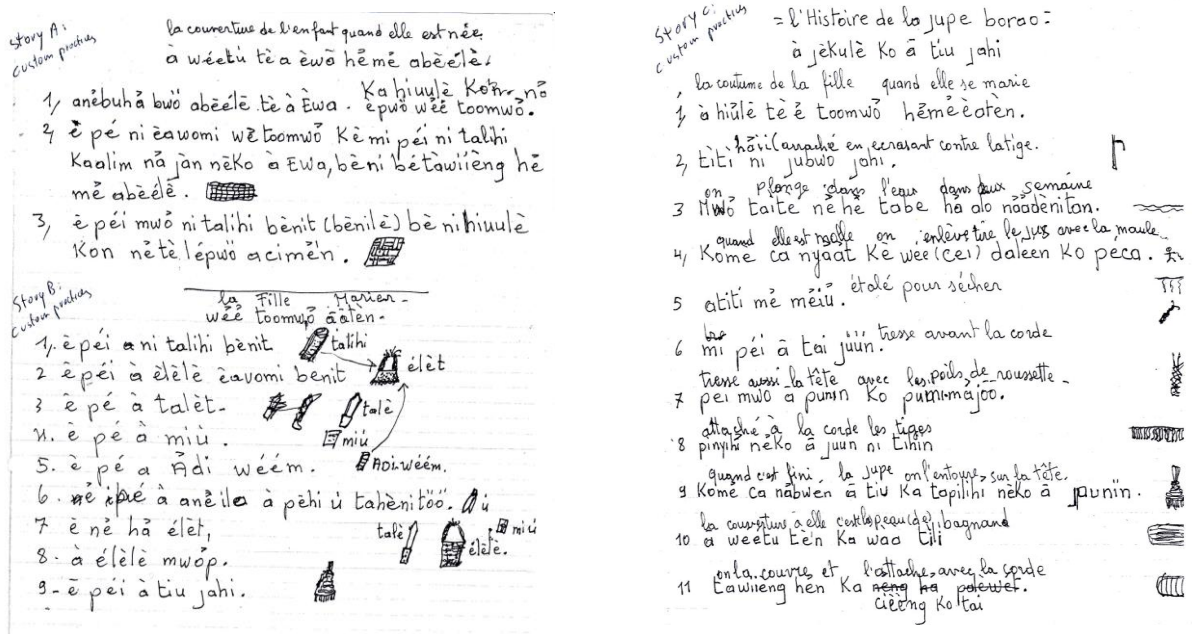 Story A:
custom practices
la couverture de l'enfant quand elle est née
à wéetú tè a èwõ hẻmẻ abèélè.
Ka hiuulè Kon nỏ
1, anẻbuhả bwö abèélè tè à Ewa. èpwö wẻẻ toomwỏ.
2, è pé ni èawomi wẽ toomwỏ Kè mi péi ni talihi
Kaalim nả jàn nẽko à Ewa, bèni bétawiièng hẻ
mẻ abèélè.
3, è péi mwỏ ni talihi bènit (bènilè) bè ni hiuulè
Kon nẻ tè lépwö acimẻn.
Story B:
custom practices
la Fille Marier-
wẻẻ toomwỏ ããtèn-
1. è péi ni talihi bènit talihi
2 è péi à èlèlè èavomi benit élèt
3 è pé à talèt- talè
4. è pé à miù. miú
5. è pé a Ả̉di wéém. ADi-wéém.
6. à anẻile à pèhi ú tahènitöö. ú
7 è nẻ hả élèt, talè miú
8. à élèlè mwỏp. élèlè.
9- è péi à tiu jahi.
Story C:
custom practices
= l'Histoire de la jupe borao =
à jèkulè Ko ā tiu jahi
la coutume de la fille quand elle se marie
1, à hiủlè tè ẻ toomwỏ hẻmẻèatèn.
hâri (arraché en ecrasant contre la tige.
2, tìtì ni jubwo jahi.
on plonge dans l'eau dans deux semaine
3 Mwỏ taite nẻ hẻ tabe hả alo nããdènitan.
quand elle est molle on enlève tire le jus avec la moule
4, Komẻ ca nyaảt Kẻ wee (cei) daleen Ko péca.
étalé pour sécher
5 atiti mẻ mẻiủ.
tresse avant la corde
6 mi péi ā tai jüün.
tresse aussi la tête avec les poils de roussette-
7 pei mwo a punin Ko pumi-majöö.
attaché à la corde les tiges
8 pinyihi nẻko ā juun ni tihin
quand c'est fini, la jupe on l'entoure sur la tête.
9 Komẻ ca nabwen ā tiu Ka tapilihi nẻko ā punin.
la couverture à elle c'est la peau (de) bagnand
10 a weetu tè'n Ka waa tili
on la couvre et l'attache avec la corde
11 tawiieng hẻn Ka neng ha
ciẻẻng Ko tai